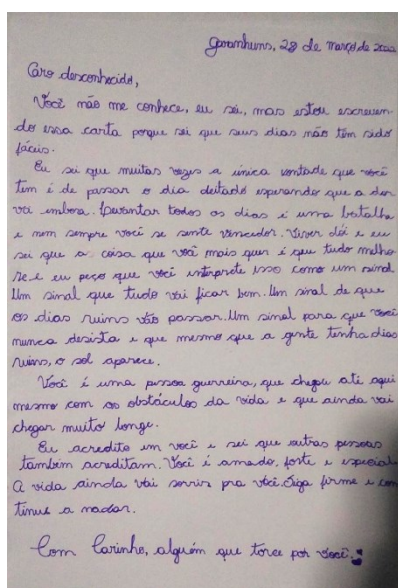 Garanhuns, 28 de março de 2022
Caro desconhecido,
Você não me conhece, eu sei, mas estou escreven-
do essa carta porque sei que seus dias não têm sido
fáceis.
Eu sei que muitas vezes a única vontade que você
tem é de passar o dia deitado esperando que a dor
vá embora. Levantar todos os dias é uma batalha
e nem sempre você se sente vencedor. Viver dói e eu
sei que a coisa que você mais quer é que tudo melho
re, e eu peço que você interprete isso como um sinal.
Um sinal que tudo vai ficar bem. Um sinal de que
os dias ruins vão passar. Um sinal para que você
nunca desista e que mesmo que a gente tenha dias
ruins, o sol aparece.
Você é uma pessoa guerreira, que chegou até aqui
mesmo com os obstáculos da vida e que ainda vai
chegar muito longe.
Eu acredito em você e sei que outras pessoas
também acreditam. Você é amado, forte e especial.
A vida ainda vai sorrir pra você. Siga firme e con
tinue a nadar.
Com Carinho, alguém que torce por você.